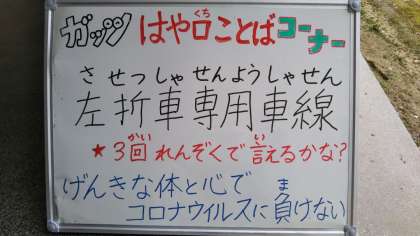 ガッツ はや口ことばコーナー
くち
させっしゃせんようしゃせん
左折車専用車線
かい い
★3回れんぞくで言えるかな?
げんきな体と心で
ま
コロナウイルスに負けない